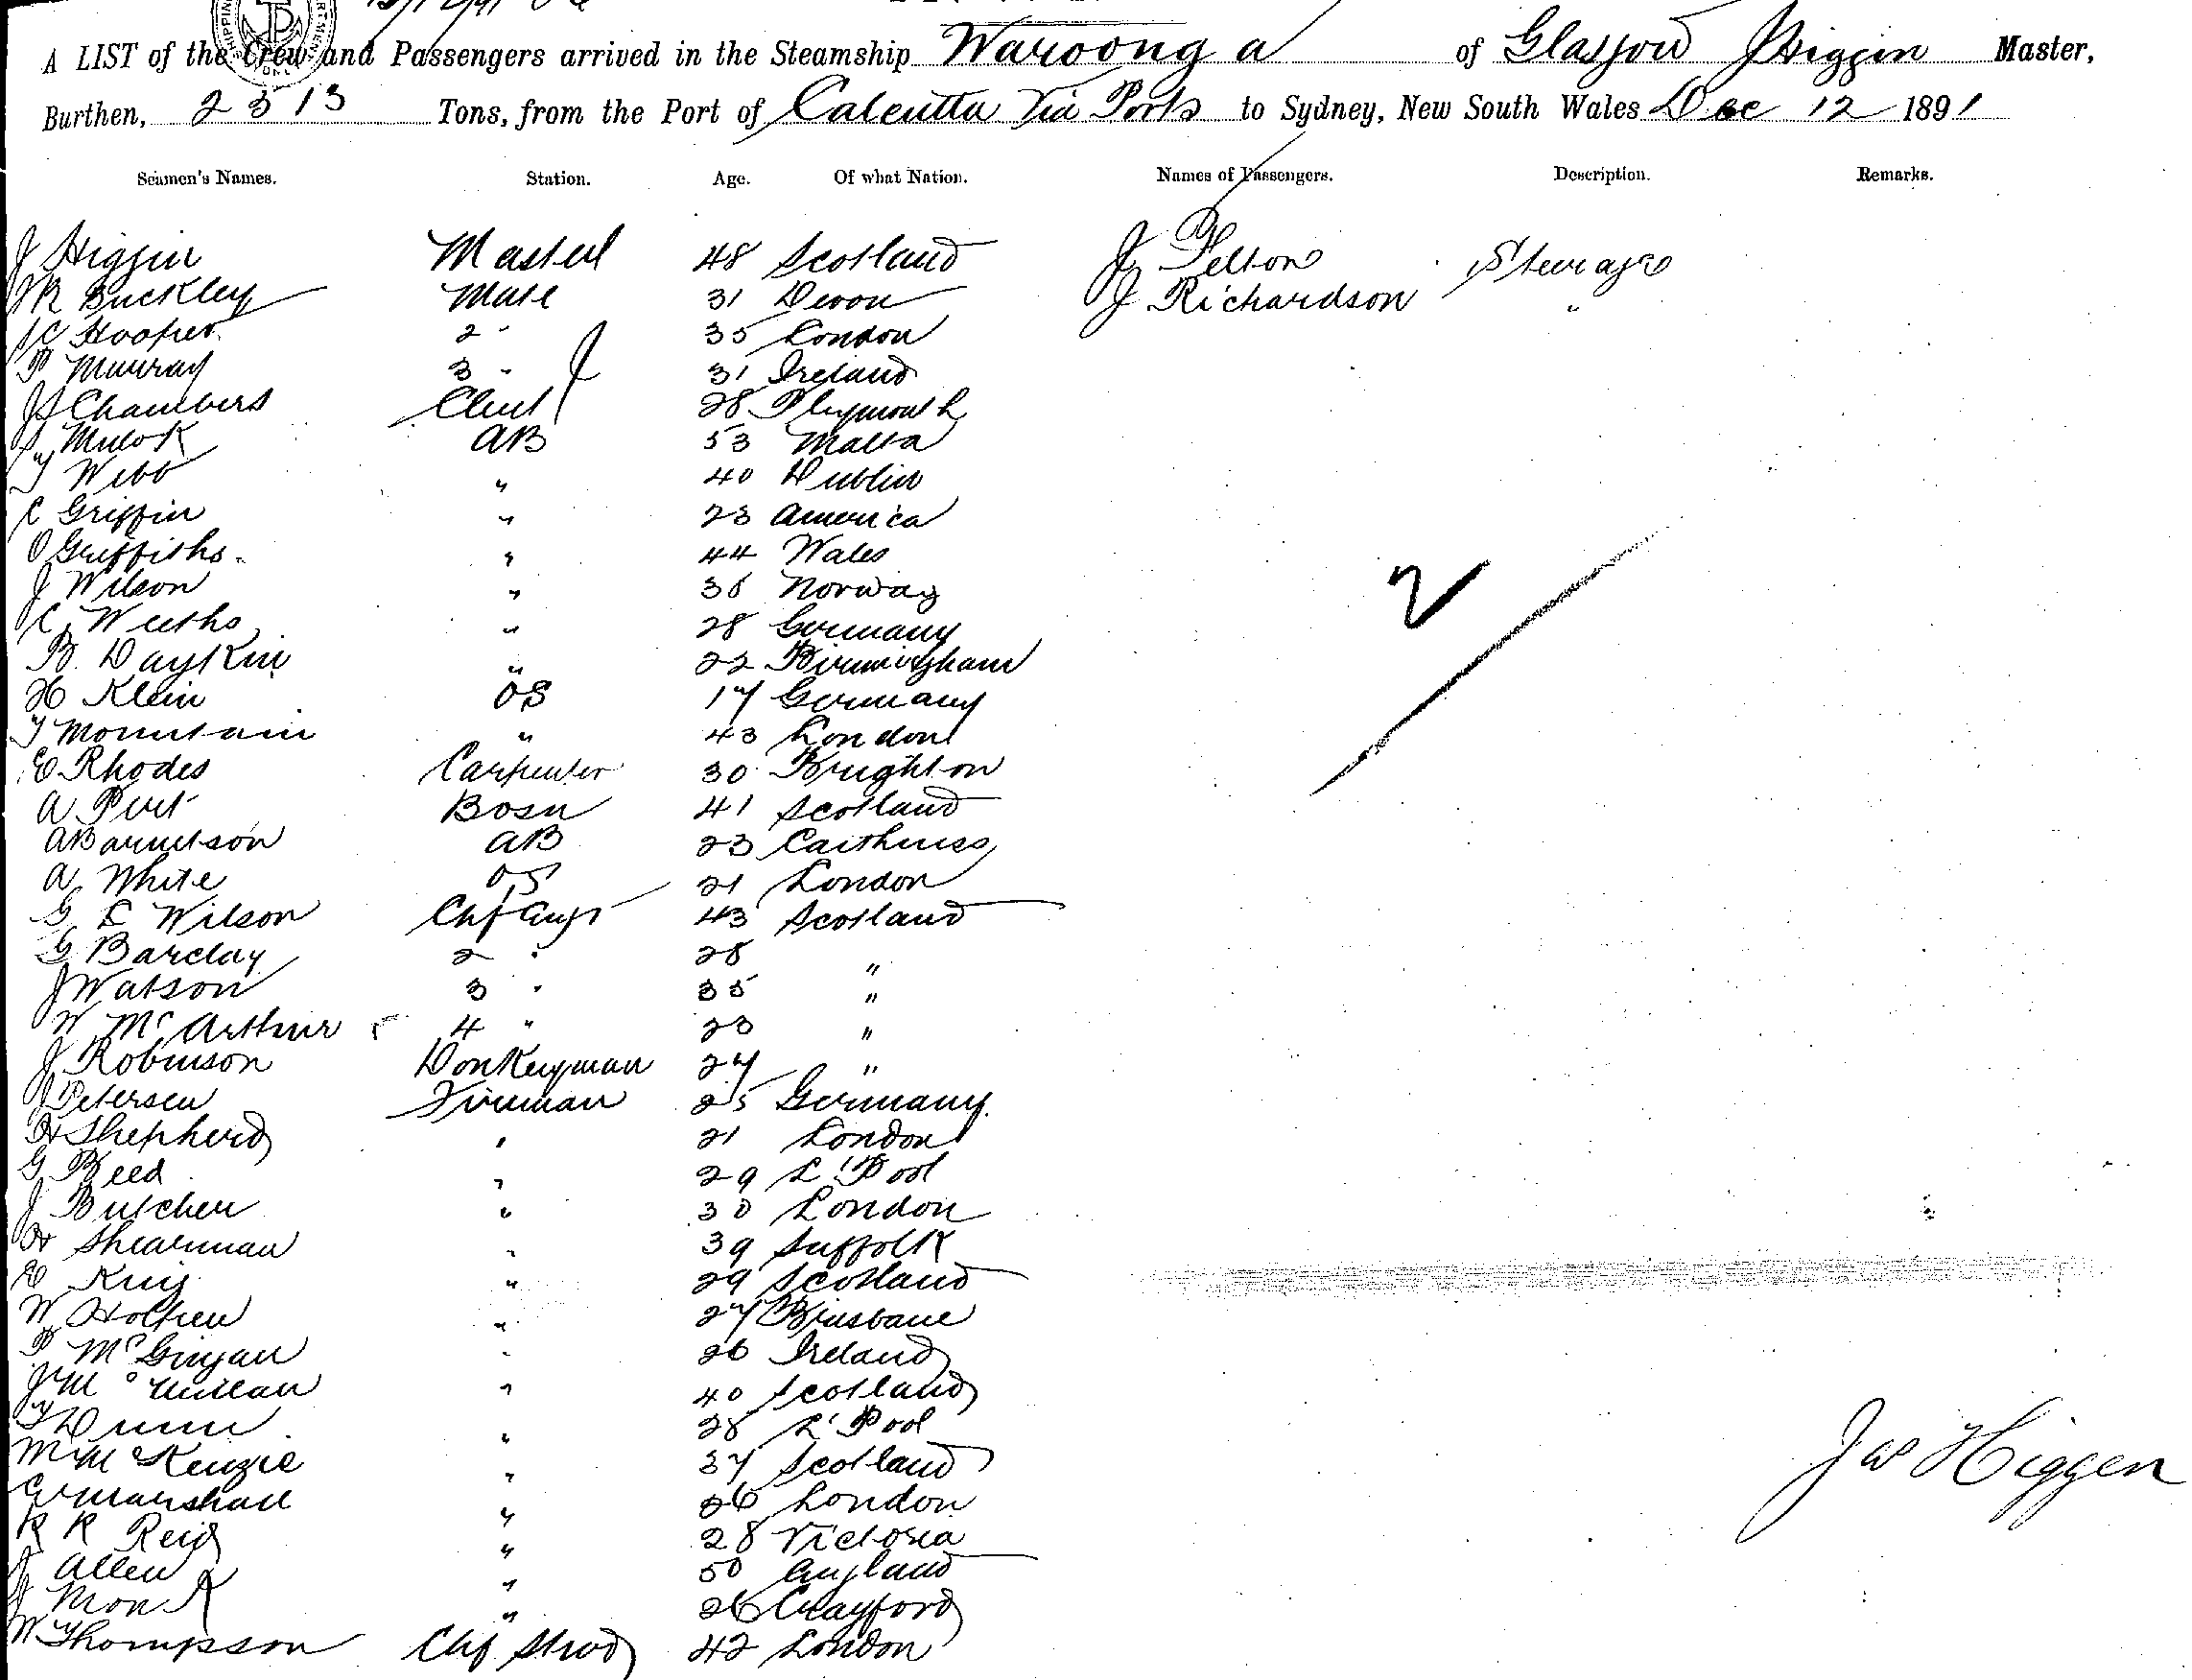 A LIST of the Crew and Passengers arrived in the Steamship Waroonga of Glasgow J Higgin Master,
Burthen, 2513 Tons, from the Port of Calcutta Via Ports to Sydney, New South Wales Dec 12 1891
Seamen's Names. Station. Age. Of what Nation. Names of Passengers. Description. Remarks.
J Higgin Master 48 Scotland J Pelton Steerage
Buckley Mate 31 Devon J Richardson "
JC Hooper 2 " 35 London
P Murray 3 " 31 Ireland
JS Chambers Clerk 28 Plymouth
AB 53 Malta
T Webb " 40 Dublin
C Griffin " 23 America
O Griffiths " 44 Wales
J Wilson " 36 Norway
C " 28 Germany
B. Daykin " 22 Birmingham
H Klein OS 17 Germany
T Mountain " 43 London
E Rhodes Carpenter 30 Brighton
A Bosn 41 Scotland
A Barnetson AB 23 Caithness
A White OS 21 London
G L Wilson Chf Engr 43 Scotland
G Barclay 2 " 28 "
J Watson 3 " 35 "
W McArthur 4 " 23 "
J Robinson Donkeyman 27 "
J Petersen Fireman 25 Germany
H Shepherd " 21 London
G Reed " 29 L'Pool
J Butcher " 30 London
H Shearman " 39 Suffolk
E King " 29 Scotland
W " 27 Brisbane
P " 26 Ireland
J McMillan " 40 Scotland
T Dunn " 28 L'Pool
M McKenzie " 37 Scotland
Marshall " 26 London
R R Reid " 28 Victoria
J Allen " 50 England
J Monk " 26 Crayford
W Thompson Chf Stwd 42 London
2
Jas Higgin